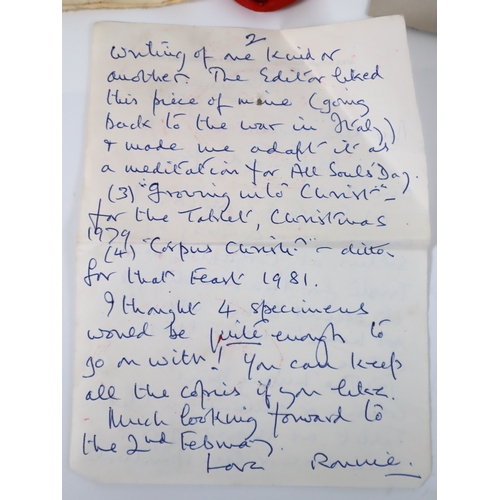 2
writing of one kind or
another. The Editor liked
this piece of mine (going
back to the war in Italy)
& made me adapt it as
a meditation for All Souls' Day.
(3) "Growing into Christ" –
for the Tablet, Christmas
1979
(4) "Corpus Christi" – ditto
for that Feast 1981.
I thought 4 specimens
would be quite enough to
go on with! You can keep
all the copies if you like.
Much looking forward to
the 2nd February.
Love Ronnie.